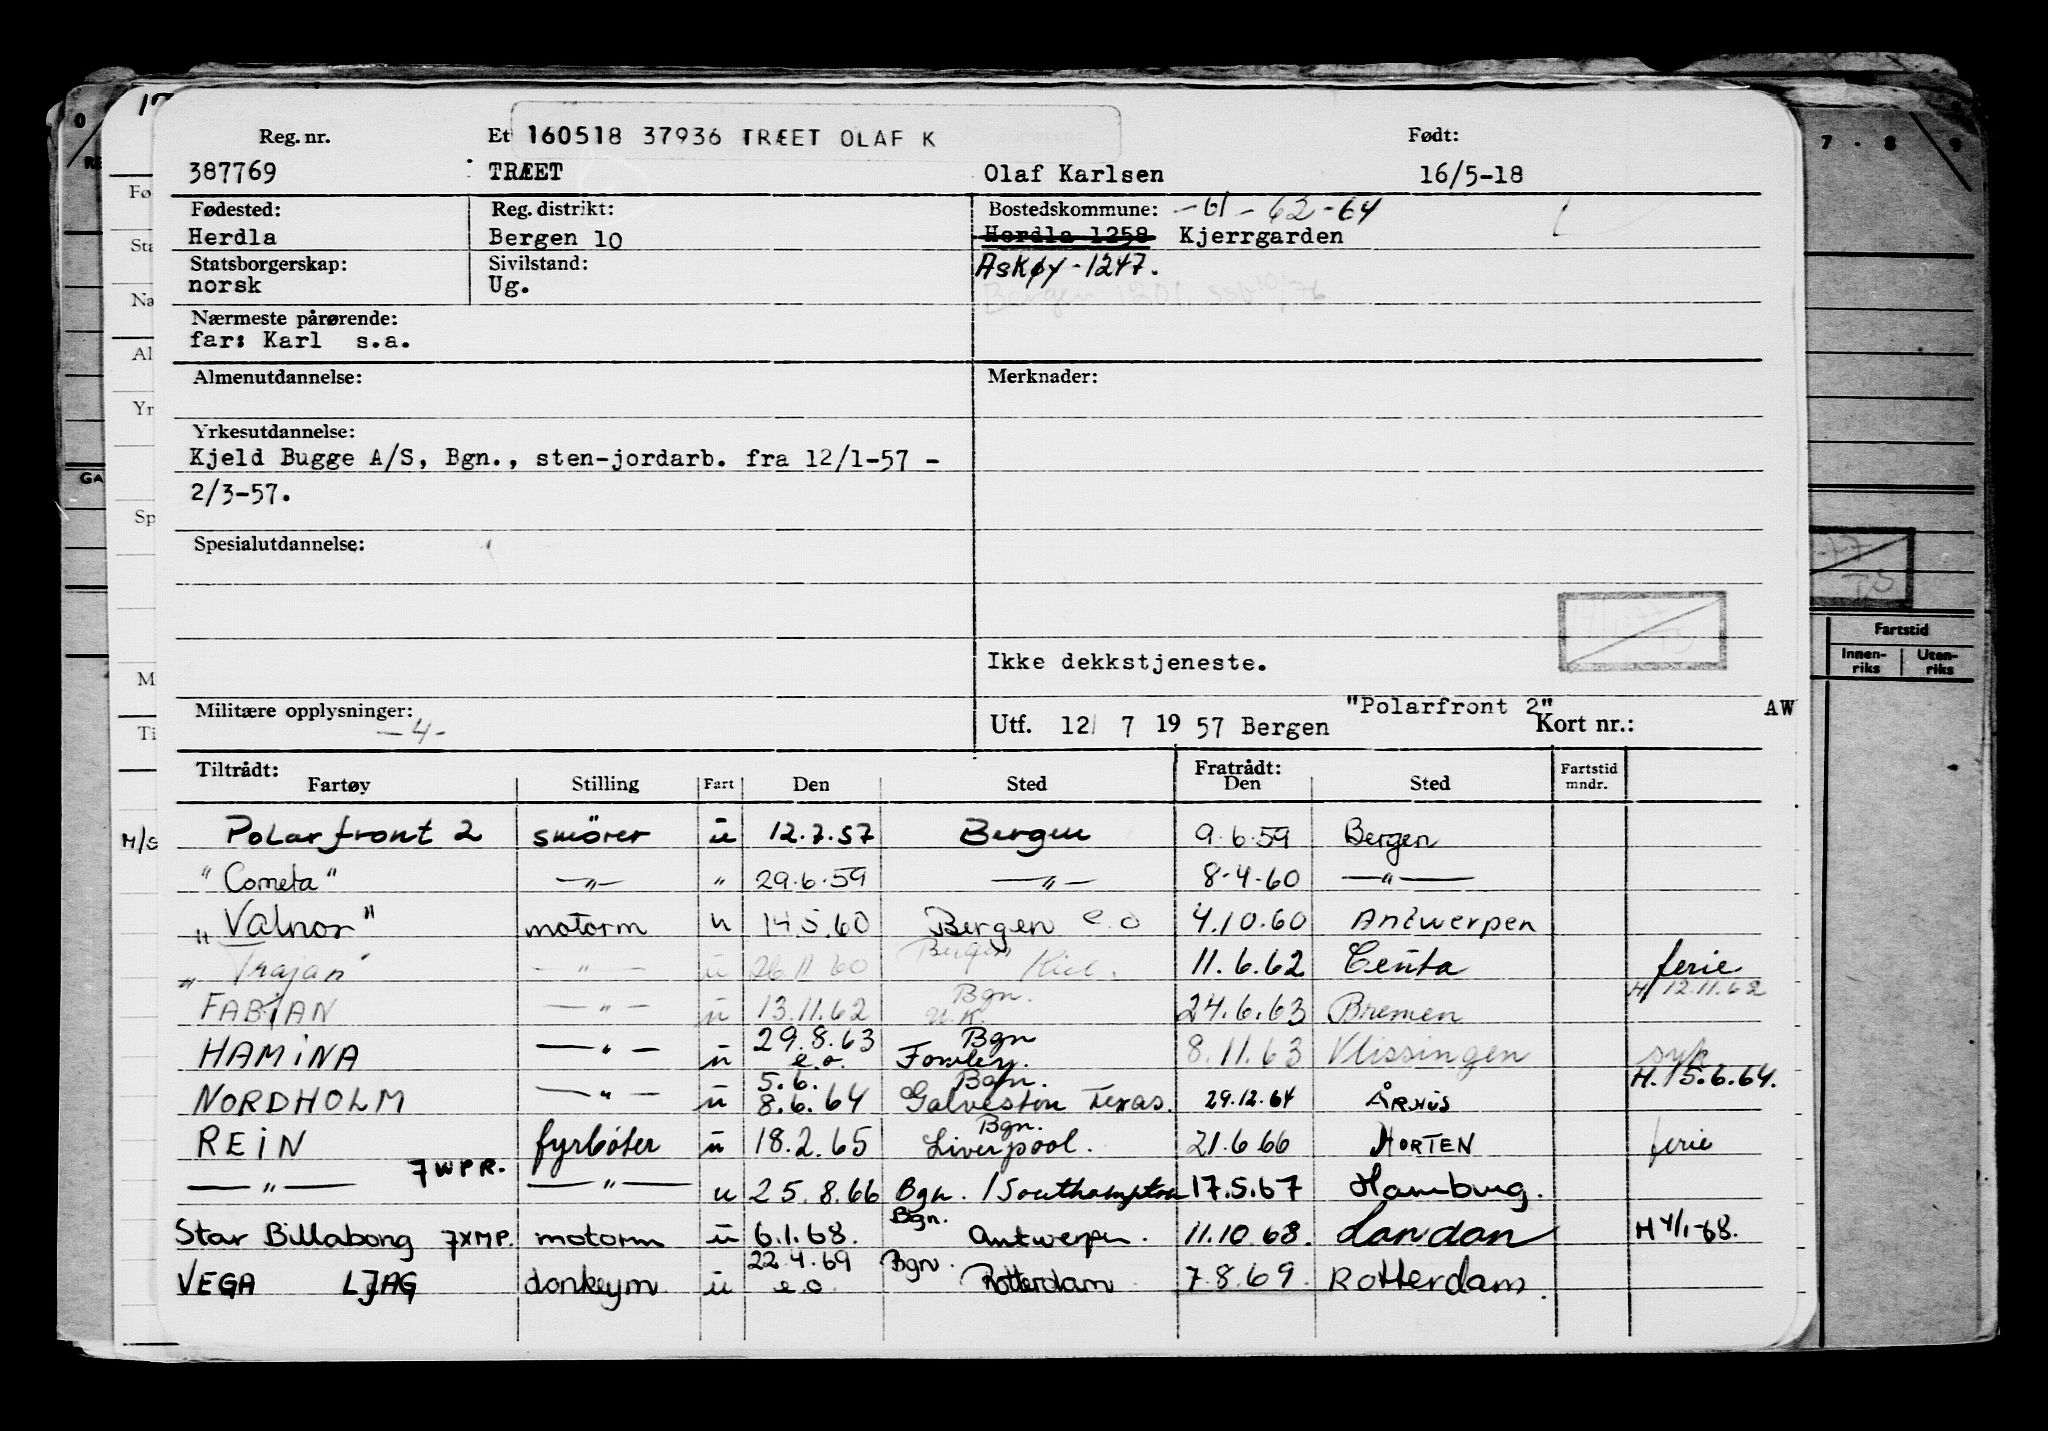 Reg. nr. Et 160518 37936 TRÆET OLAF K Født:
387769 TRÆET Olaf Karlsen 16/5-18
Fødested: Reg. distrikt: Bostedskommune: -61-62-64
Herdla Bergen 10 Herdla 1258 Kjerrgarden
Statsborgerskap: Sivilstand: Askøy-1247.
norsk Ug. Bergen 1201
Nærmeste pårørende:
far: Karl s.a.
Almenutdannelse: Merknader:
Yrkesutdannelse:
Kjeld Bugge A/S, Bgn., sten-jordarb. fra 12/1-57 -
2/3-57.
Spesialutdannelse:
Ikke dekkstjeneste.
Militære opplysninger: -4-
"Polarfront 2" AW
Utf. 12/ 7 19 57 Bergen Kort nr.:
Tiltrådt: Fratrådt:
Fartøy Stilling Fart Den Sted Den Sted Fartstid mndr.
M/S Polarfront 2 smører u 12.7.57 Bergen 9.6.59 Bergen
" Cometa" —"— " 29.6.59 —"— 8.4.60 —"—
" Valnor" motorm u 14.5.60 Bergen e.o 4.10.60 Antwerpen
" Trajan" —"— u 26.11.60 Bergen Kiel. 11.6.62 Ceuta ferie
H/12.11.62
FABIAN —"— u 13.11.62 Bgn. U.K. 24.6.63 Bremen
HAMINA —"— u 29.8.63 e.o. Bgn Fowley. 8.11.63 Vlissingen syk
H./5.6.64.
NORDHOLM —"— u 5.6. 8.6.64 Bgn. Galveston Texas. 29.12.64 ÅRHUS
REIN fyrbøter u 18.2.65 Bgn. Liverpool. 21.6.66 HORTEN ferie
—"— 7WPR. —"— u 25.8.66 Bgn. /Southampton 17.5.67 Hamburg.
Star Billabong 7XMP. motorm u 6.1.68. Bgn. Antwerpen. 11.10.68. London H 4/1-68.
VEGA LJAG donkeym u 22.4.69 e.o. Bgn. Rotterdam 7.8.69. Rotterdam.
0
GA
Fø
Sta
Na
Al
Yr
Sp
M
Ti
7 . 8 9
Fartstid
Innen-riks Uten-riks